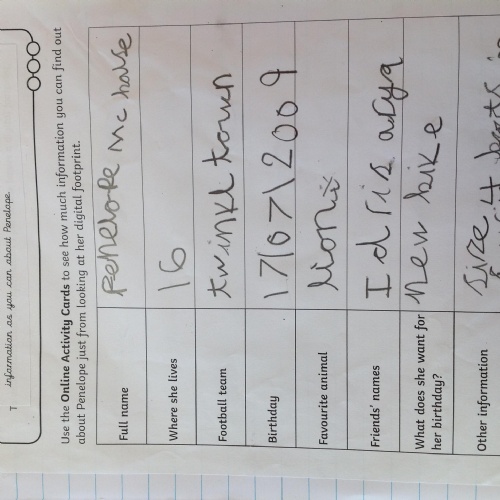 information as you can about Penelope.
Use the Online Activity Cards to see how much information you can find out
about Penelope just from looking at her digital footprint.
Full name penelope mc
Where she lives 16
Football team twinkl town
Birthday 17/07/2009
Favourite animal lion
Friends' names Idris arya
What does she want for
her birthday? new bike
Other information